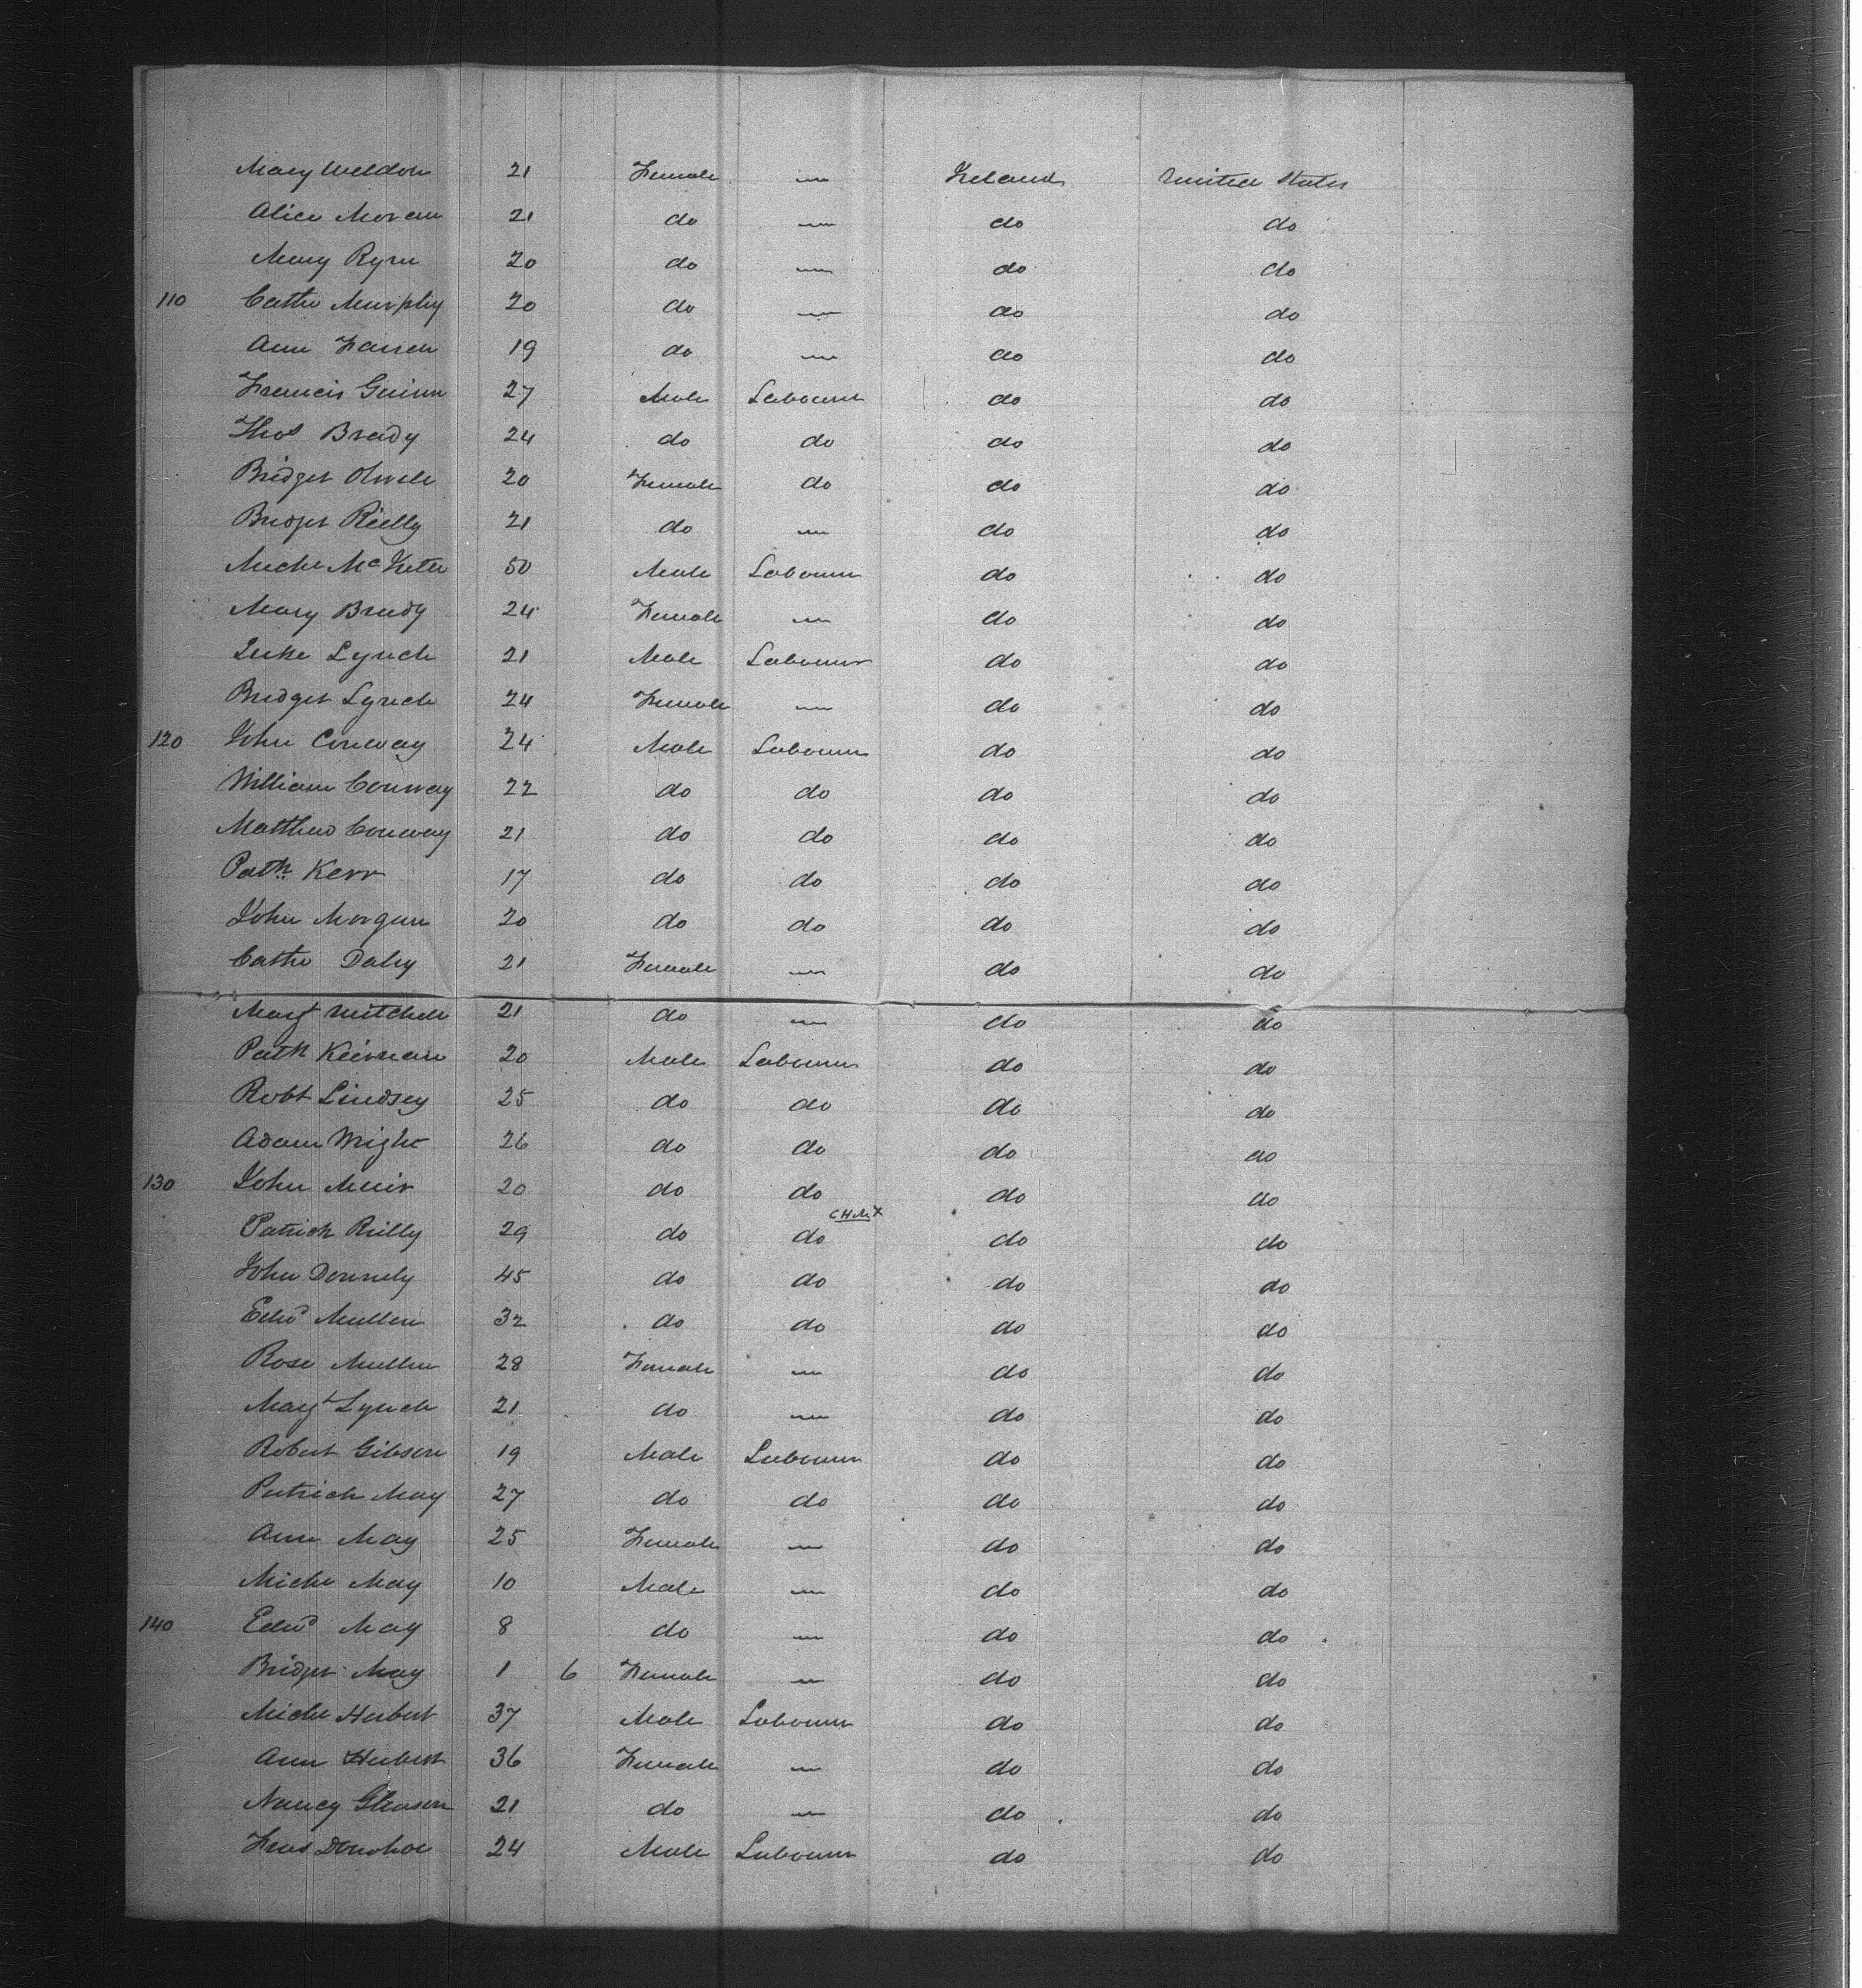 Mary Weldon 21 Female — Ireland United States
Alice Moran 21 do — do do
Mary Ryan 20 do — do do
110 Cathe Murphy 20 do — do do
Ann 19 do — do do
Francis Guinn 27 Male Labourer do do
Thos Brady 24 do do do do
Bridget 20 Female do do do
Bridget Reilly 21 do — do do
Michl 50 Male Labourer do do
Mary Brady 24 Female — do do
Luke Lynch 21 Male Labourer do do
Bridget Lynch 24 Female — do do
120 John Conway 24 Male Labourer do do
William Conway 22 do do do do
Matthew Conway 21 do do do do
Patk Kerr 17 do do do do
John Morgan 20 do do do do
Cathe Daley 21 Female — do do
Margt Mitchell 21 do — do do
Patk Keirnan 20 Male Labourer do do
Robt Lindsey 25 do do do do
Adam Wright 26 do do do do
130 John Muir 20 do do do do
Patrick Reilly 29 do do do do
John Donnely 45 do do do do
Edwd Mullen 32 do do do do
Rose Mullen 28 Female — do do
Margt Lynch 21 do — do do
Robert Gibson 19 Male Labourer do do
Patrick May 27 do do do do
Ann May 25 Female — do do
Michl May 10 Male — do do
140 Edwd May 8 do — do do
Bridget May 1 6 Female — do do
Michl Herbert 37 Male Labourer do do
Ann Herbert 36 Female — do do
Nancy Gleason 21 do — do do
Donohoe 24 Male Labourer do do